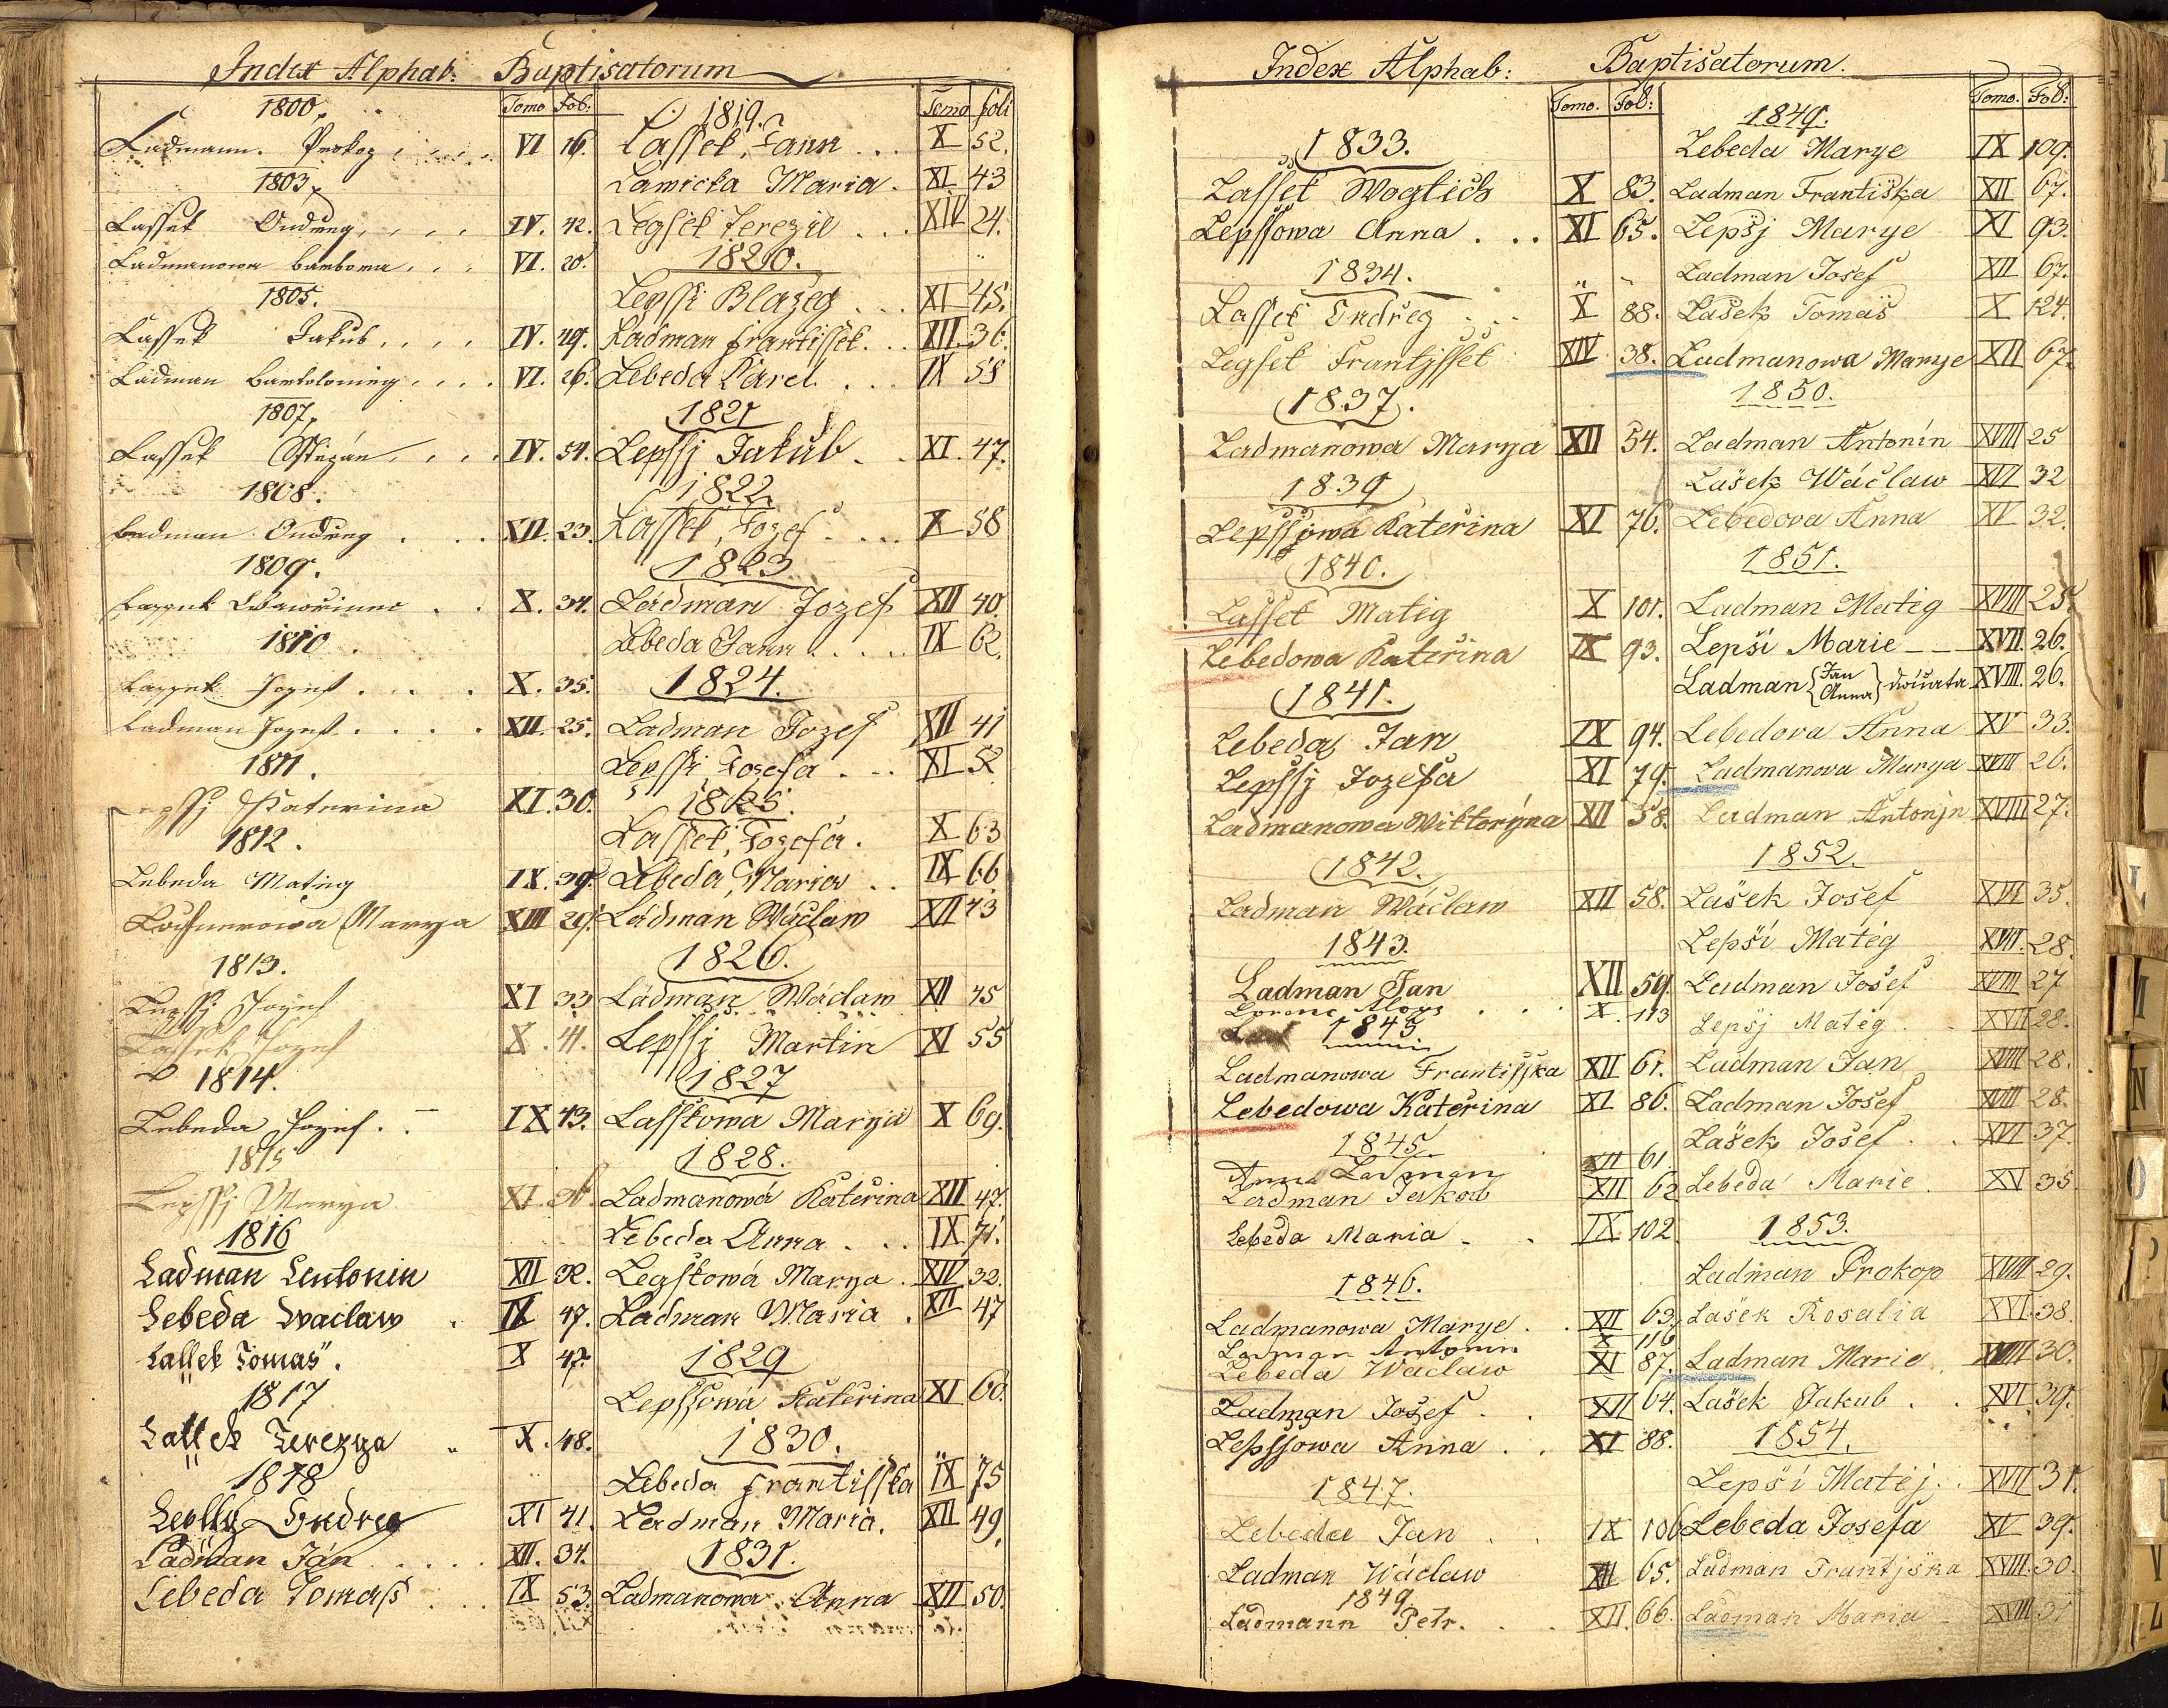 Index Alphab: Baptisatorum
Tomo Fol:
1800.
Ladmann. Prokop VI 16.
1803.
Lassek Ondřeg IV. 42.
Ladmanowa Barbora VI. 20.
1805.
Lassek Jakub IV. 49.
Ladman Bartolomieg VI. 26.
1807.
Lassek Sstiepan IV. 54.
1808.
Ladman Ondřeg XII. 23.
1809.
Lassek Wawřinec X. 34.
1810.
Lassek Jozef X. 35.
Ladman Jozef XII. 25.
1811.
Lepssj Katerina XI. 30.
1812.
Lebeda Matieg IX. 39.
Marya XIII 29.
1813.
Lepssj Jozef XI 33
Lassek Jozef X. 41.
1814.
Lebeda Jozef. IX 43.
1815
Lepssj Marya XI.
1816
Ladman Antonin XII 32.
Lebeda Waclaw IX 47.
Lassek Tomáš. X 47.
1817
Lassek Terezya X. 48.
1818
Lepssj Ondreg XI 41.
Ladman Ján XII. 34.
Lebeda Tomass IX 53.
Tomo foli
1819.
Lassek, Jann X 52.
Lawicka Maria. XI 43
Legsek Terezie XIV 24.
1820.
Lepssi Blažeg XI 45.
Ladman Frantissek. XII. 36.
Lebeda Karel IX 58
1821
Lepssj Jakub. XI. 47.
1822
Lassek, Jozef X 58
1823
Ladman Jozef XII 40.
Lebeda Jann IX 62.
1824.
Ladman Jozef XII 41
Lepssi, Josefa XI 52
1825.
Lassek, Josefa. X 63
Lebeda, Maria IX 66
Ládman Wáclaw XII 43
1826.
Ládman Wáclaw XII 45
Lepssj Martin XI 55
1827
Lasskowa Marya X 69.
1828.
Ladmanowá Kateřina XII 47.
Lebeda Anna IX. 71.
Legskowá Marya. XIV 32.
Ladman Maria XII 47
1829
Lepssowá Kateřina XI 60.
1830.
Lebeda Frantisska IX 75
Ladman Maria. XII 49.
1831.
Ladmanowa Anna XII 50.
Index Alphab: Baptisatorum.
Tomo. Fol:
1833.
Lassek Wogtěch X 83.
Lepssowa Anna XI 65.
1834.
Lassek Ondřeg X 88.
Legsek Frantjssek XIV 38.
1837.
Ladmanowa Marya XII 54.
1839
Lepssowa Kateřina XI 76.
1840.
Lassek Matěg X 101.
Lebedowa Kateřina IX 93.
1841.
Lebeda Jan IX 94.
Lepssj Jozefa XI 79.
Ladmanowa Wiktorýna XII 58.
1842.
Ladman Wáclaw XII 58.
1843.
Ladman Jan XII 59.
Lorenc Aloys X. 113
1845
Ladmanowa Frantisska XII 61.
Lebedowa Kateřina XI 86.
1845.
Anna Ladman XII 61
Ladman Jakob XII 62
Lebeda Maria IX 102
1846.
Ladmanowa Marye XII 63.
Ladman Antonin X 116
Lebeda Waclaw XI 87.
Ladman Josef XII 64.
Lepssowa Anna XI 88.
1847.
Lebeda Jan IX 106
Ladman Wáclaw XII 65.
1849
Ladmann Petr. XII. 66.
Tomo. Fol:
1849.
Lebeda Marye IX 109.
Ladman Františka XII 67.
Lepšj Marye XI 93.
Ladman Josef XII 67.
Lašek Tomáš X 124.
Ladmanowa Marye XII 67.
1850.
Ladman Antonín XVIII 25
Lašek Wáclaw XVI 32
Lebedova Anna XV 32.
1851.
Ladman Matěg XVIII 25.
Lepší Marie XVII. 26.
Ladman {Jan Anna} dvíčata XVIII. 26.
Lebedova Anna XV 33.
Ladmanova Marya XVIII 26.
Ladman Antonjn XVIII 27.
1852.
Lašek Josef XVI 35.
Lepší Matěg XVII. 28.
Ladman Josef XVIII 27
Lepšj Matěg XVII 28.
Ladman Jan XVIII 28.
Ladman Josef XVIII 28.
Lašek Josef XVI 37.
Lebeda Marie XV 35.
1853.
Ladman Prokop XVIII 29.
Lašek Rosalia XVI. 38.
Ladman Marie XVIII 30.
Lašek Jakub XVI. 39.
1854.
Lepší Matěj XVII 31.
Lebeda Josefa XV 39.
Ladman Frantjška XVIII. 30.
Ladman Maria XVIII 31
L
M
N
O
P
S